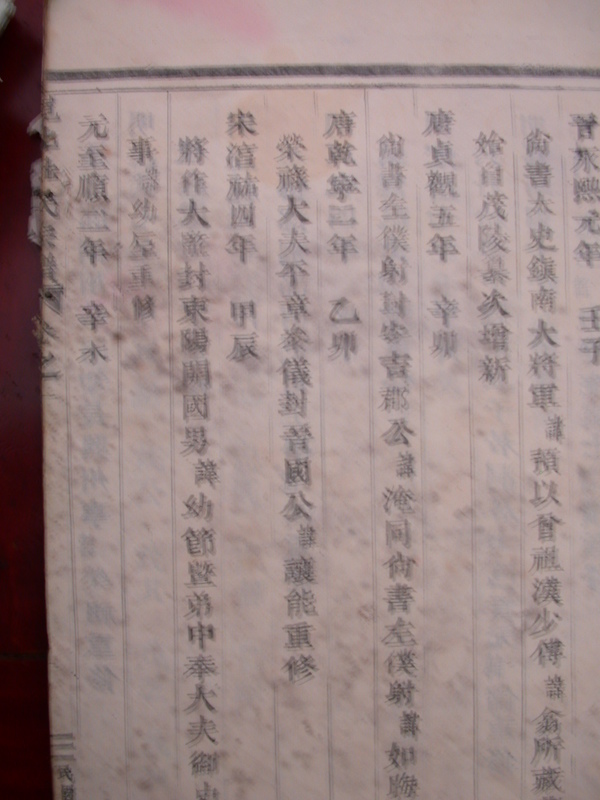 晉永熙元年 壬子
尙書太史鎮南大將軍諱預以曾祖漢少傅諱翁所藏
始自茂陵纂次增新
唐貞觀五年 辛卯
尙書左僕射封安吉郡公諱淹同尙書左僕射諱如晦
唐乾寧二年 乙卯
榮祿大夫平章參儀封晉國公諱讓能重修
宋淳祐四年 甲辰
將作大監封東陽開國男諱幼節暨弟中奉大夫御史
事諱幼 重修
元至順二年 辛未